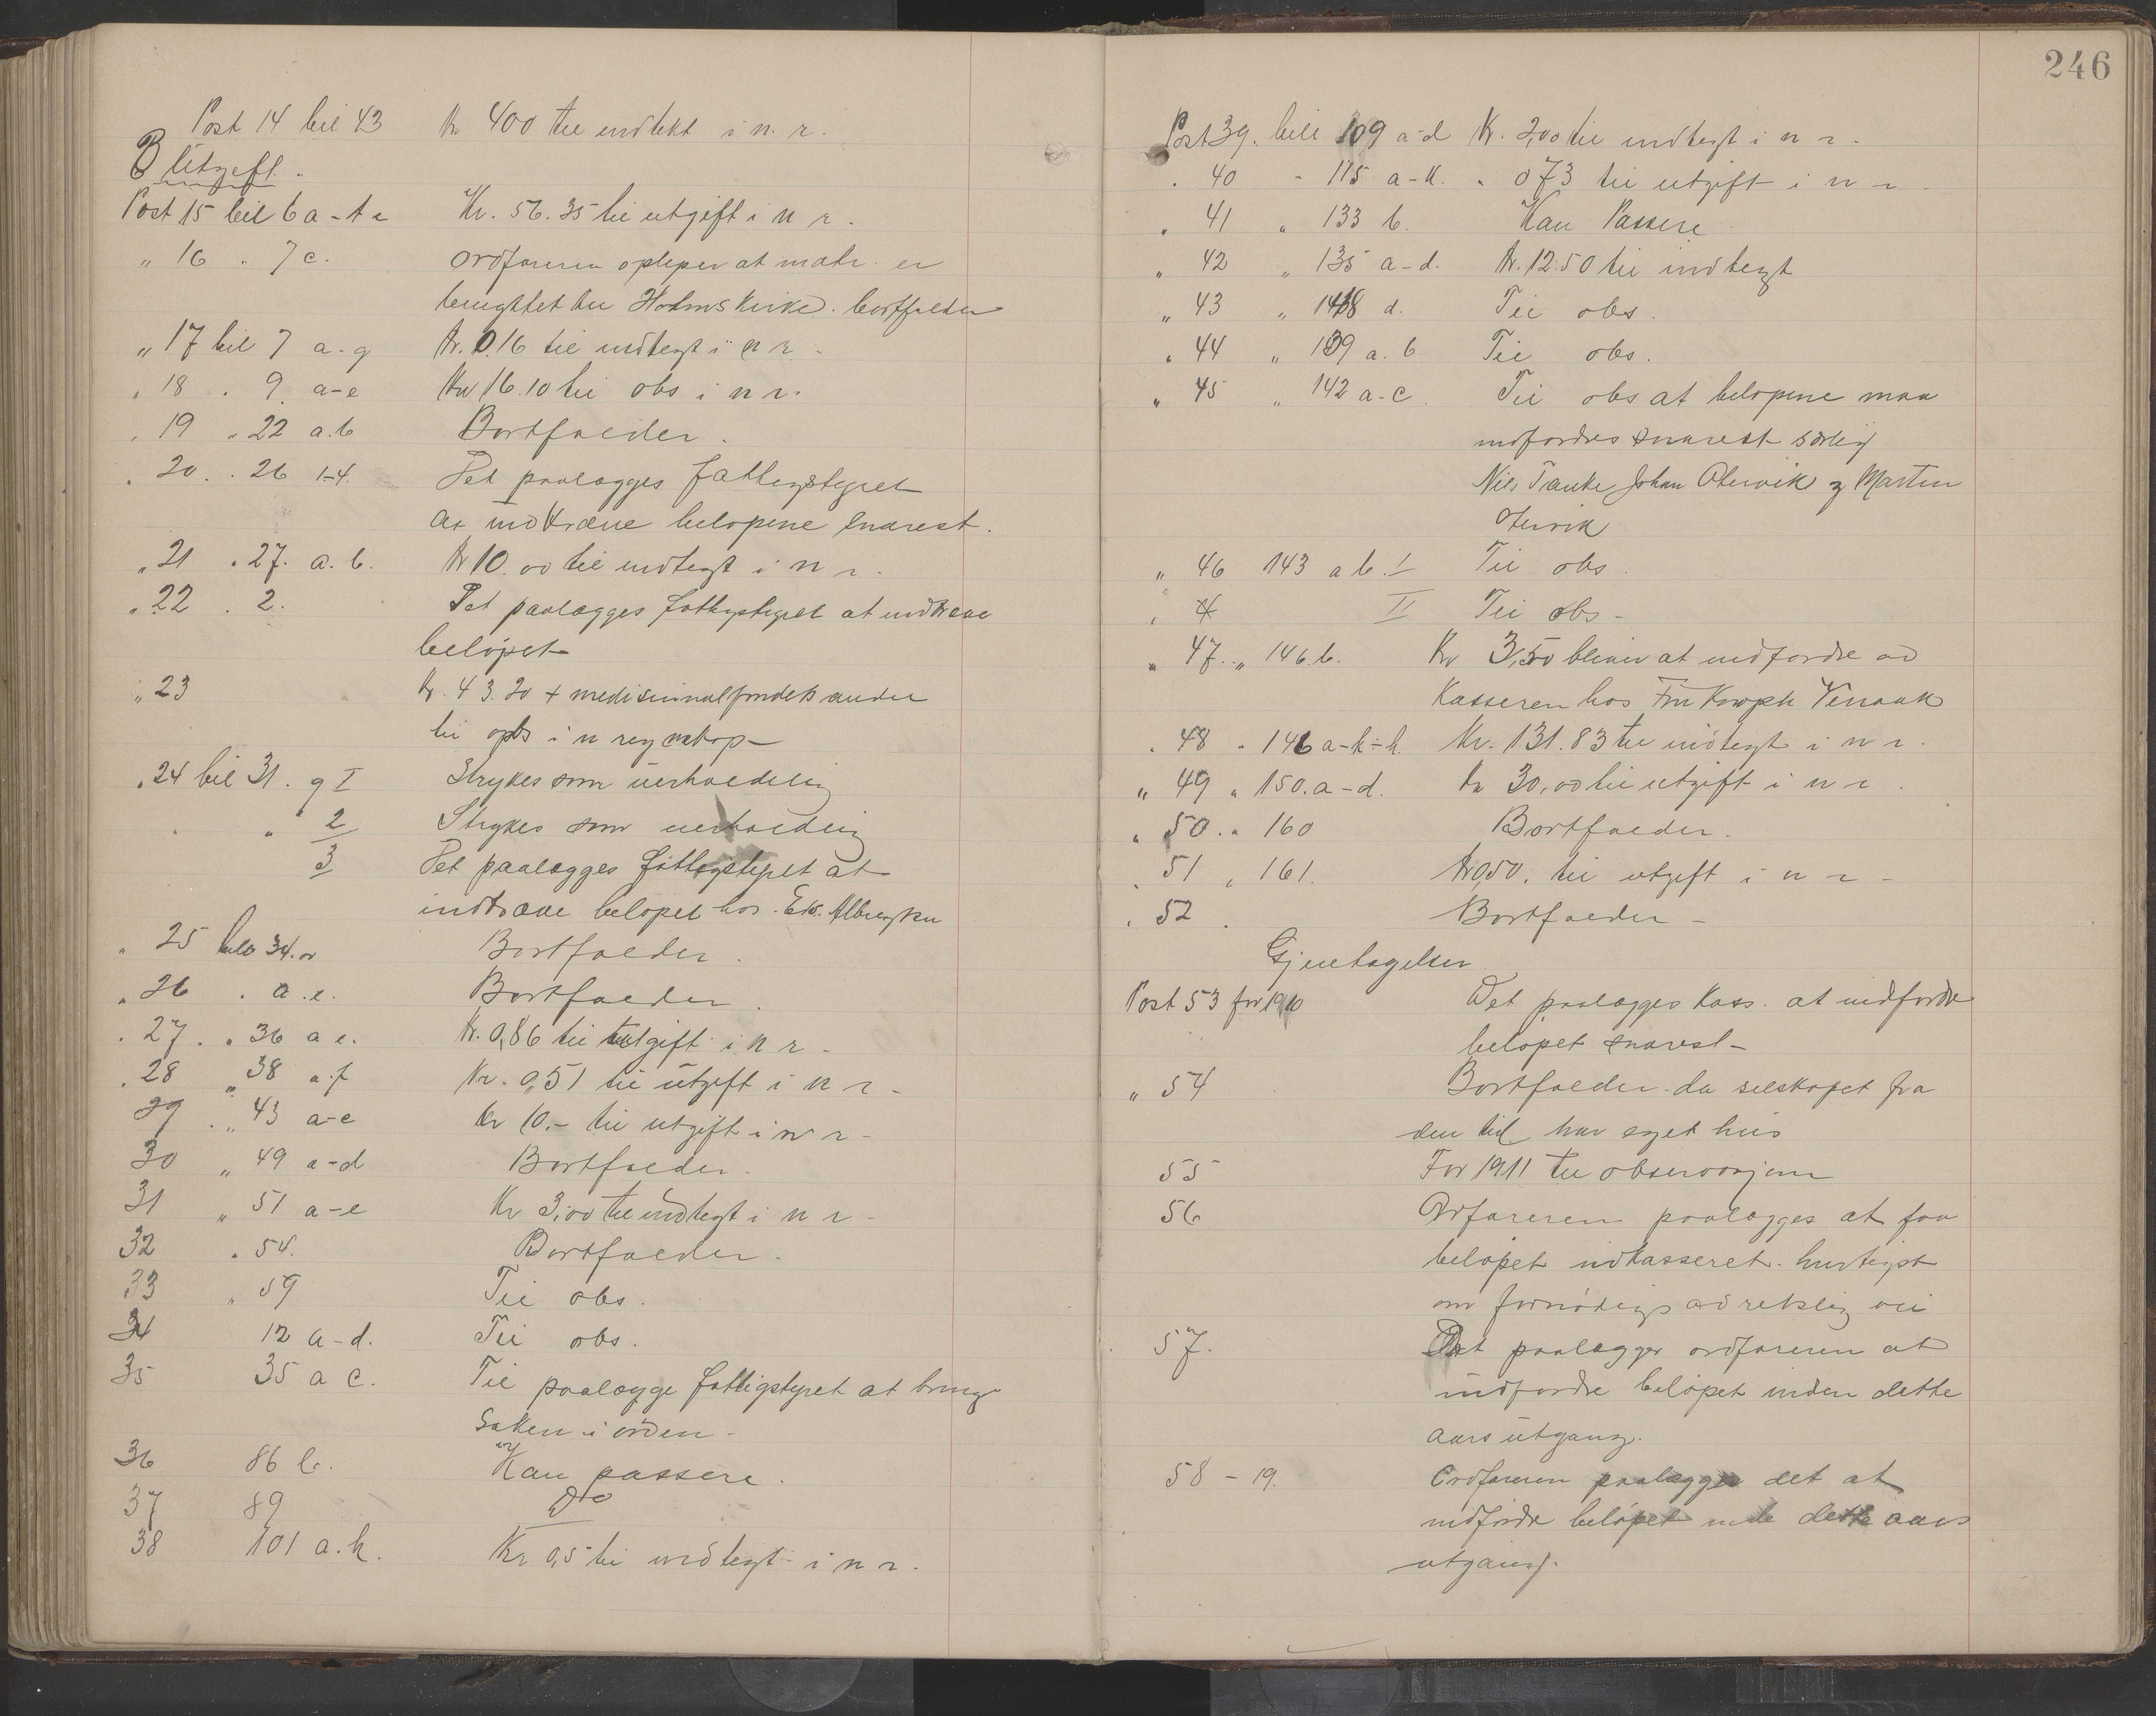 Post 14 bil 43 Kr 400 til indtekt i n. r.
B Utgift.
Post 15 bil 6 a-t Kr. 56.35 til utgift i n r.
" 16 . 7 c. Ordføreren oplyser at matr. er
benyttet til Holms Kirke. bortfalder
" 17 bil 7 a-g Kr. 0.16 til indtegt i n r.
" 18 . 9. a-e Kr 16.10 til obs i n r.
" 19 " 22 a.b Bortfalder.
" 20 . 26 1-4. Det paalægges fattigstyret
at indkræve beløpene snarest.
" 21 " 27. a.b. Kr 10.00 til indtegt i n r.
" 22 . 2. Det paalægges fattigstyret at indkræve
beløpet
" 23 Kr. 43.20 + medisinalfondets andel
til obs i n regnskap
" 24 bil 31. g I Strykes som uerholdelig
" 2 Strykes som uerholdelig
3 Det paalægges fattigstyret at
indkræve beløpet hos
" 25 bil 34. Bortfalder.
" 26 . a.e. Bortfalder.
" 27. " 36 a e. Kr. 0,86 til utgift i n r.
" 28 " 38 a.f Kr. 0,51 til utgift i n r.
29 " 43 a-e Kr 10.- til utgift i n r.
30 " 49 a-d Bortfalder.
31 " 51 a-e Kr 3,00 til indtegt i n r
32 " 54. Bortfalder.
33 " 59 Til obs.
34 12 a-d. Til obs.
35 35 a c. Til paalægge fattigstyret at bringe
Saken i orden
36 86 b. Kan passere.
37 89 Do
38 101 a.k. Kr 0,5 til indtegt i n r.
246
Post 39. bil 109 a-d Kr. 2,00 til indtegt i n r.
" 40 " 115 a-k. " 073 til utgift i n r
" 41 " 133 b. Kan Passere
" 42 " 135 a-d. Kr. 12.50 til indtegt
" 43 " d. Til obs.
" 44 " 139 a.b Til obs.
" 45 " 142 a-c. Til obs at beløpene maa
indfordres snarest særlig
Johan Otervik og Martin
Otervik
" 46 143 a b. I Til obs.
" II Til obs
" 47. " 146.b. Kr 3,50 bliver at indfordre av
Kasseren hos
" 48 " 146 a-h Kr. 131.83 til indtegt i n r.
" 49 " 150. a-d. Kr 30,00 til utgift i n r.
" 50. " 160 Bortfalder.
" 51 " 161. Kr 0,50. til utgift i n r
" 52 Bortfalder
Gjentagelser
Post 53 for 1910 Det paalægges Kass. at indfordre
beløpet snarest
" 54 Bortfalder. da selskapet fra
den tid har eget hus
55 For 1911 til observasjon
56 Ordføreren paalægges at faa
beløpet indkasseret. hurtigst
om fornødiges ad retslig vei
57. Det paalægges ordføreren at
indfordre beløpet inden dette
aars utgang.
58 - 19. Ordføreren paalægges det at
indfordre beløpet inden dette aars
utgang.